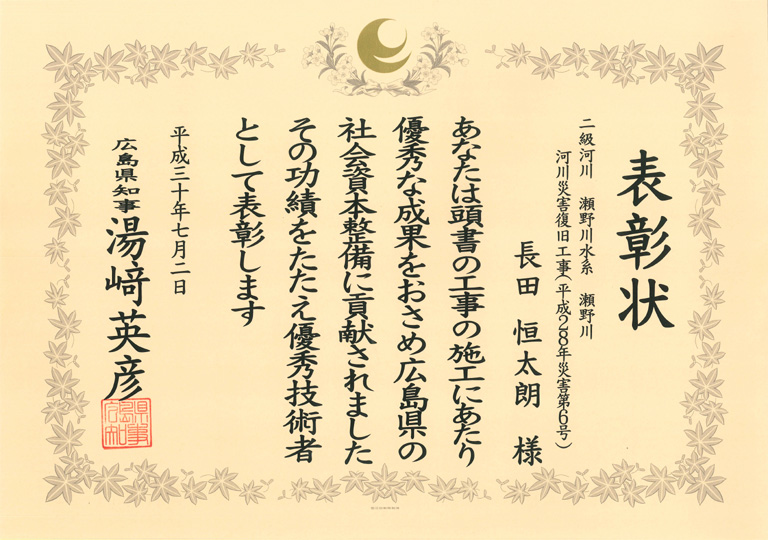 表彰状
二級河川 瀬野川水系 瀬野川
河川災害復旧工事(平成28年災害第6号)
長田 恒太朗 様
あなたは頭書の工事の施工にあたり
優秀な成果をおさめ広島県の
社会資本整備に貢献されました
その功績をたたえ優秀技術者
として表彰します
平成三十年七月二日
広島県知事 湯﨑英彦
広島県知事